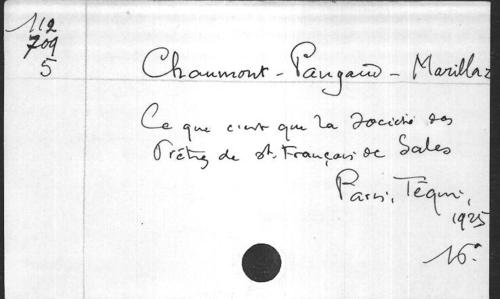 112
709
5
Chaumont - Paugaud - Marillaz
Ce que c'est que la Société des
Prêtres de St. François de Sales
Paris, Téqui,
1925
16°